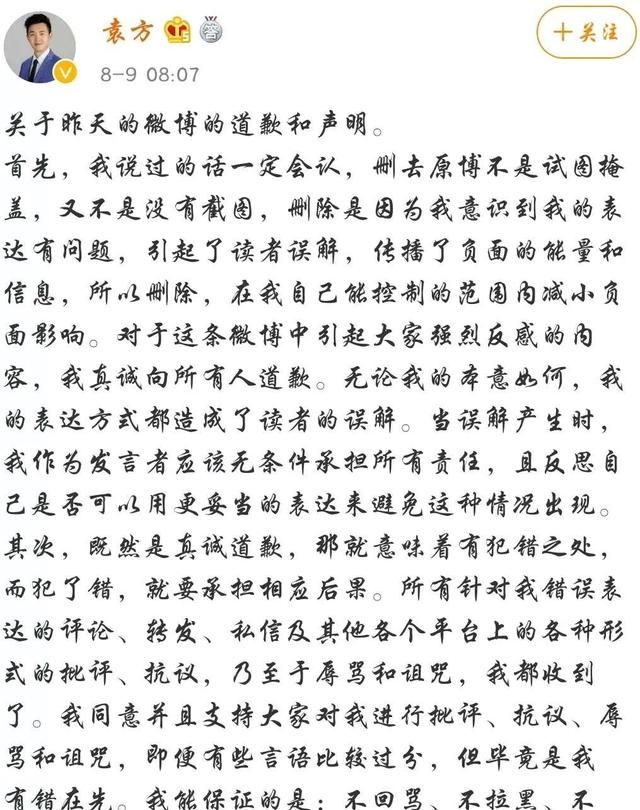 袁方
＋关注
8-9 08:07
关于昨天的微博的道歉和声明。
首先，我说过的话一定会认，删去原博不是试图掩
盖，又不是没有截图，删除是因为我意识到我的表
达有问题，引起了读者误解，传播了负面的能量和
信息，所以删除，在我自己能控制的范围内减小负
面影响。对于这条微博中引起大家强烈反感的内
容，我真诚向所有人道歉。无论我的本意如何，我
的表达方式都造成了读者的误解。当误解产生时，
我作为发言者应该无条件承担所有责任，且反思自
己是否可以用更妥当的表达来避免这种情况出现。
其次，既然是真诚道歉，那就意味着有犯错之处，
而犯了错，就要承担相应后果。所有针对我错误表
达的评论、转发、私信及其他各个平台上的各种形
式的批评、抗议，乃至于辱骂和诅咒，我都收到
了。我同意并且支持大家对我进行批评、抗议、辱
骂和诅咒，即便有些言语比较过分，但毕竟是我
有错在先。我能保证的是：不回骂、不拉黑、不